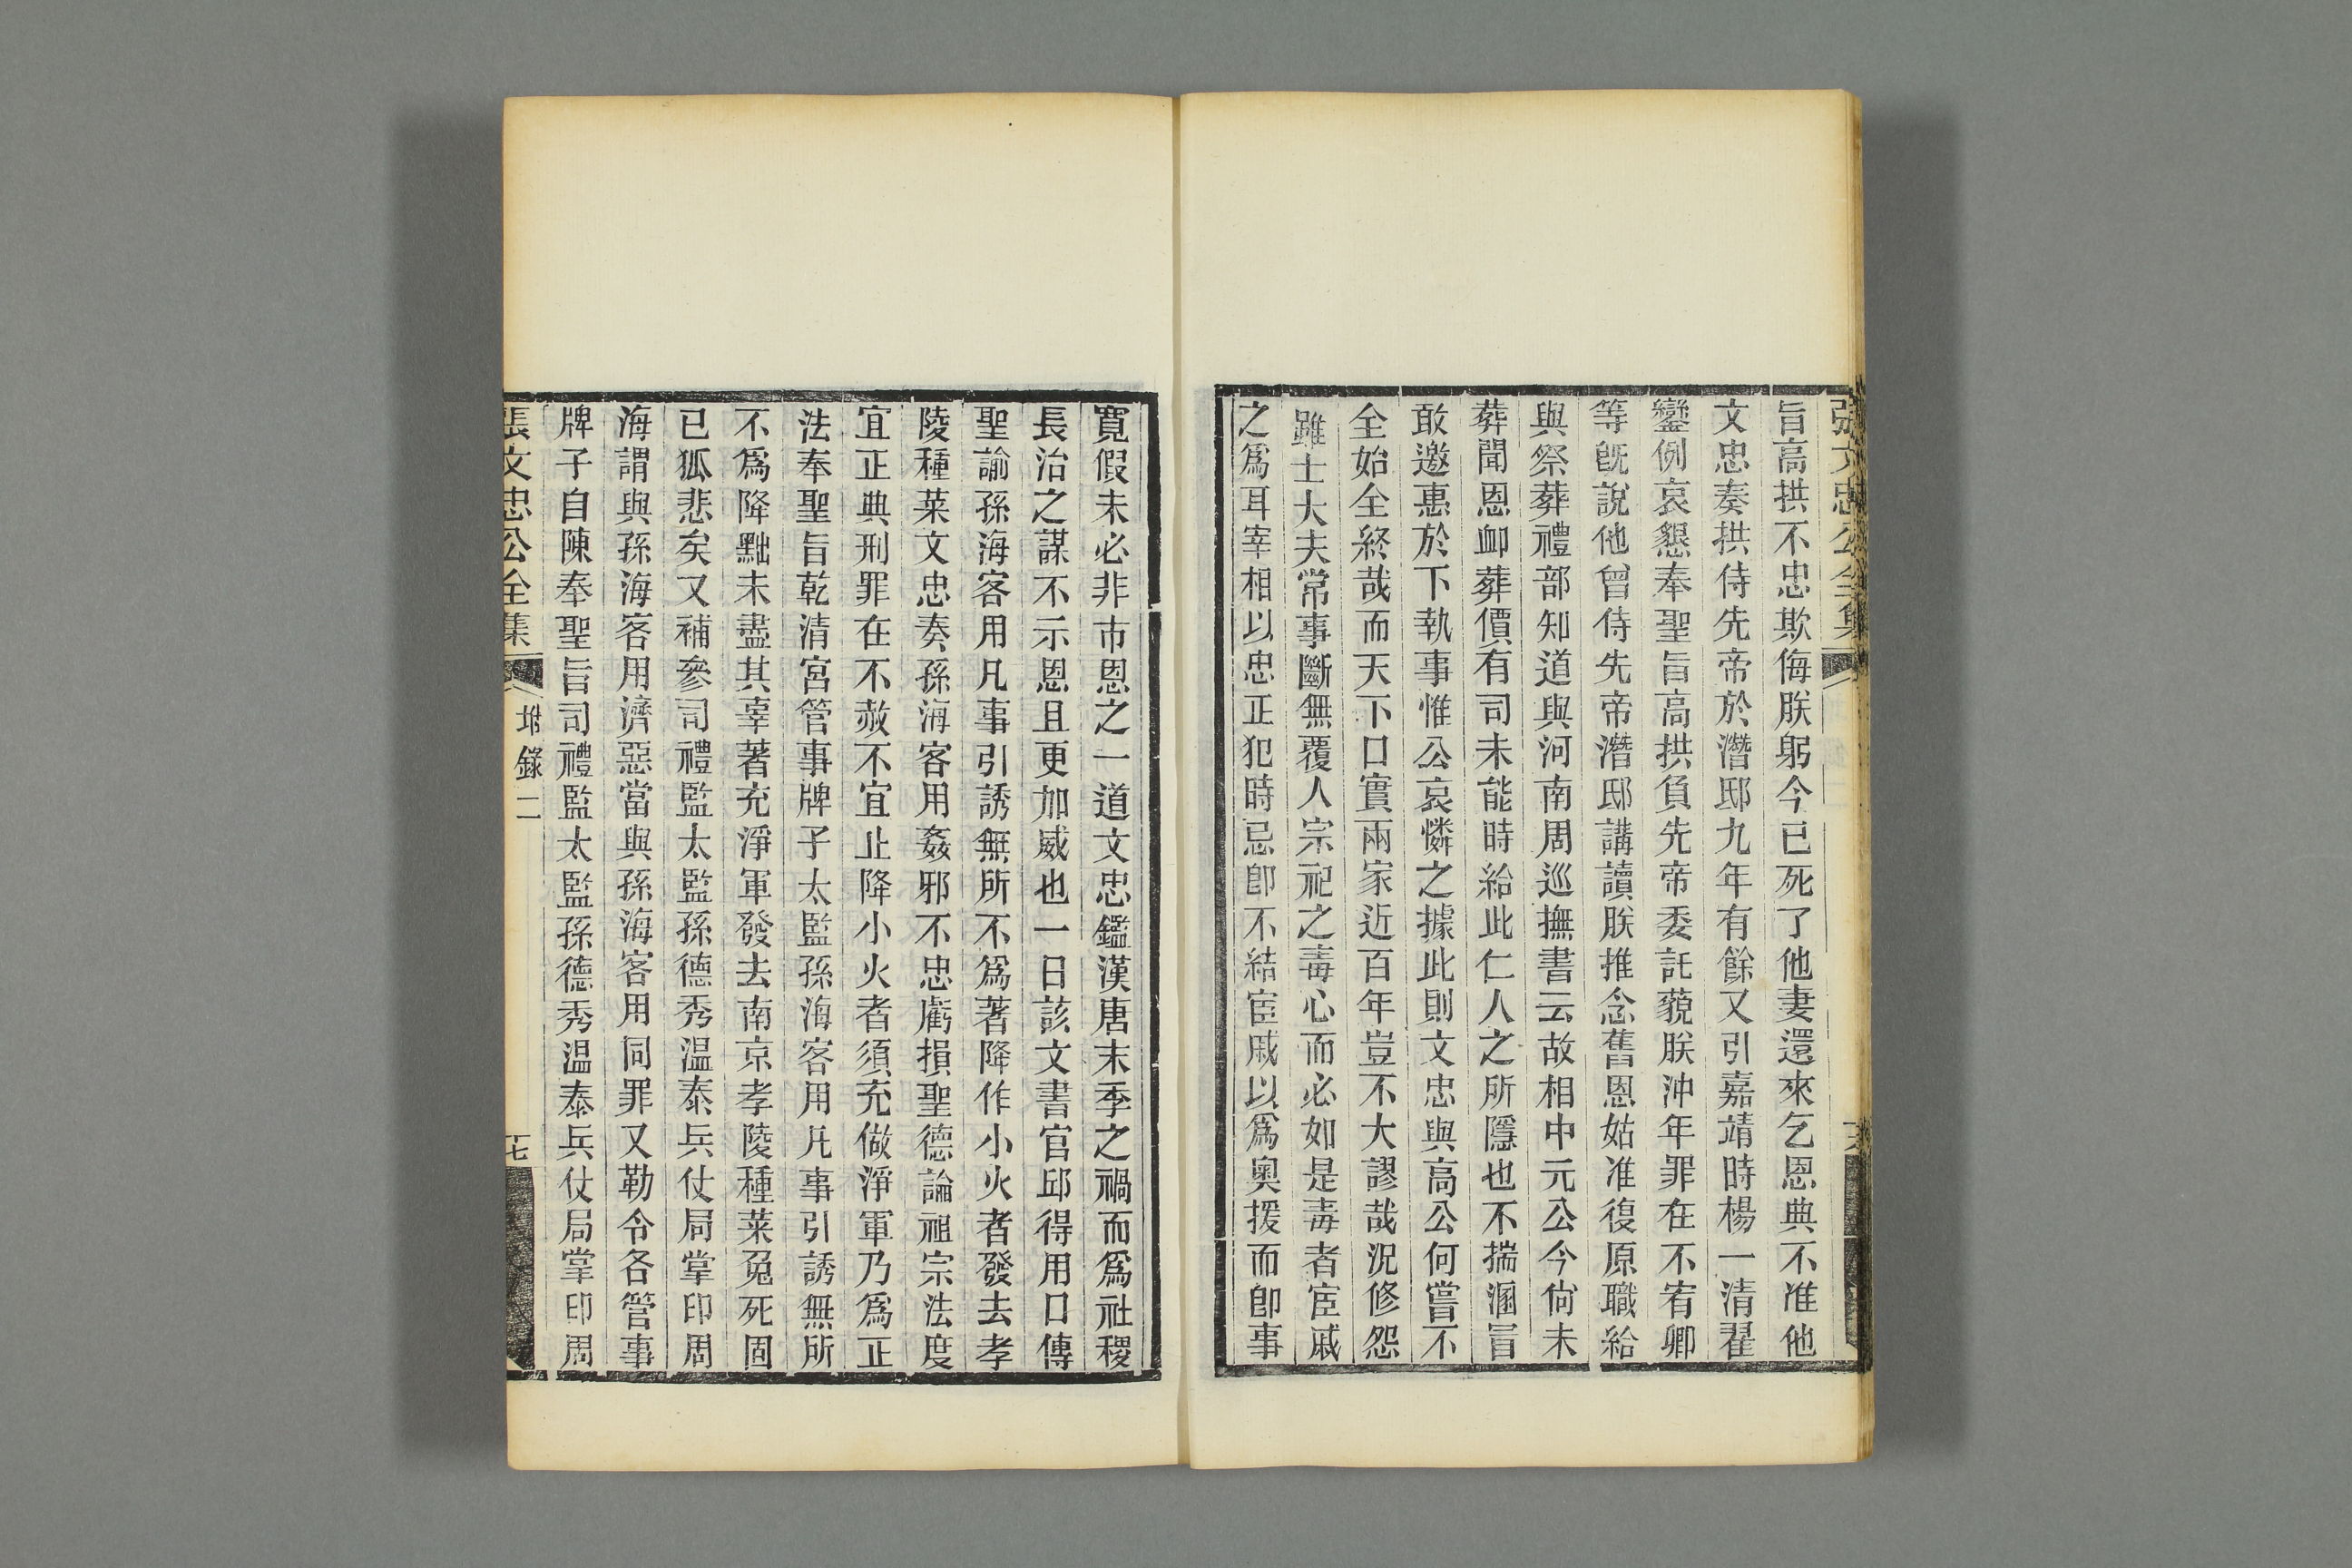 張文忠公全集
旨高拱不忠欺侮朕躬今已死了他妻還來乞恩典不准他
文忠奏拱侍先帝於潛邸九年有餘又引嘉靖時楊一清翟
鑾例哀懇奉聖旨高拱負先帝委託藐朕沖年罪在不宥卿
等旣說他曾侍先帝潛邸講讀朕推念舊恩姑准復原職給
與祭葬禮部知道與河南周巡撫書云故相中元公今尙未
葬聞恩卹葬價有司未能時給此仁人之所隱也不揣溷冒
敢邀惠於下執事惟公哀憐之據此則文忠與高公何嘗不
全始全終哉而天下口實兩家近百年豈不大謬哉況修怨
雖士大夫常事斷無覆人宗祀之毒心而必如是毒者宦戚
之爲耳宰相以忠正犯時忌卽不結宦戚以爲奧援而卽事
寬假未必非市恩之一道文忠鑑漢唐末季之禍而爲社稷
長治之謀不示恩且更加威也一日該文書官邱得用口傳
聖諭孫海客用凡事引誘無所不爲著降作小火者發去孝
陵種菜文忠奏孫海客用姦邪不忠虧損聖德論祖宗法度
宜正典刑罪在不赦不宜止降小火者須充做淨軍乃爲正
法奉聖旨乾清宮管事牌子太監孫海客用凡事引誘無所
不爲降黜未盡其辜著充淨軍發去南京孝陵種菜免死固
已狐悲矣又補參司禮監太監孫德秀温泰兵仗局掌印周
海謂與孫海客用濟惡當與孫海客用同罪又勒令各管事
牌子自陳奉聖旨司禮監太監孫德秀温泰兵仗局掌印周
張文忠公全集 坿錄二 七